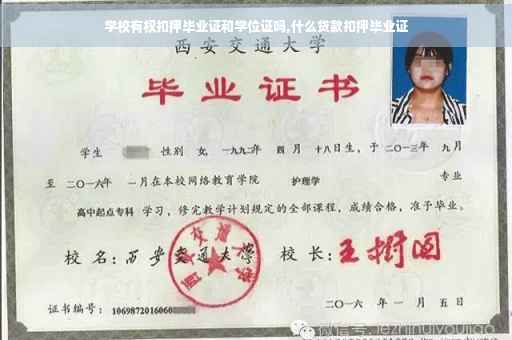 学校有权扣押毕业证和学位证吗,什么贷款扣押毕业证
西安交通大学
毕业证书
学生 性别 女, 一九九二年 四月 十八日生, 于二〇一三年 九月
至 二〇一六年 一月在本校网络教育学院 护理学 专业
高中起点专科 学习, 修完教学计划规定的全部课程, 成绩合格, 准予毕业。
校名: 西安交通大学 校长: 王树国
西安交通大学
证书编号: 1069872016060
二〇一六年 一月 五日
微信号: jezhihuiyoujiao